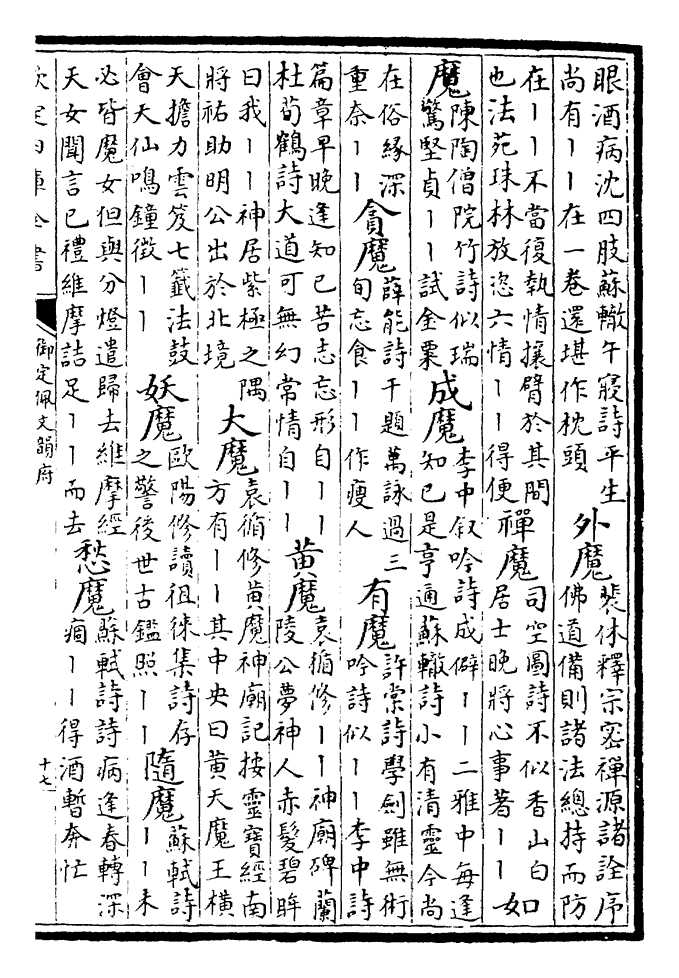 眼酒病沈四肢蘇轍午寢詩平生
尚有丨丨在一卷還堪作枕頭
外魔
裴休釋宗密禪源諸詮序
佛道備則諸法總持而防
在丨丨不當復執情攘臂於其間
也法苑珠林放恣六情丨丨得便
禪魔
司空圖詩不似香山白
居士晚將心事著丨丨
如
魔
陳陶僧院竹詩似瑞
驚堅貞丨丨試金粟
成魔
李中叙吟詩成癖丨丨二雅中每逢
知已是亨通蘇轍詩小有清靈今尚
在俗緣深
重奈丨丨
貪魔
薛能詩千題萬詠過三
旬忘食丨丨作瘦人
有魔
許棠詩學劍雖無術
吟詩似丨丨李中詩
篇章早晚逢知已苦志忘形自丨丨
杜荀鶴詩大道可無幻常情自丨丨
黄魔
袁循修丨丨神廟碑蘭
陵公夢神人赤髮碧眸
曰我丨丨神居紫極之隅
將祐助明公出於北境
大魔
袁循修黄魔神廟記按靈寳經南
方有丨丨其中央曰黄天魔王橫
天擔力雲笈七籤法鼓
會天仙鳴鐘徵丨丨
妖魔
歐陽修讀徂徠集詩存
之警後世古鑑照丨丨
隨魔
蘇軾詩
丨丨未
必皆魔女但與分燈遣歸去維摩經
天女聞言已禮維摩詰足丨丨而去
愁魔
蘇軾詩詩病逢春轉深
痼丨丨得酒暫奔忙
欽定四庫全書
御定佩文韻府
十七